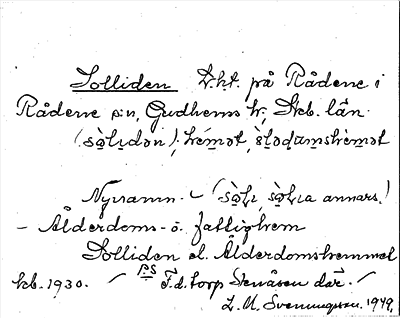 Solliden Lht. på Rådene i
Rådene sn, Gudhems hd, Skb. län.
(sòlidən), hémət, òldədɯmshèmət
Nynamn. (sòlị, sòlịa annars.)
– Ålderdoms- o. fattighem
Solliden el. Ålderdomshemmet
keb. 1930. / ps F.d. torp Stenåsen där. /
L. M. Svenungsson. 1949.